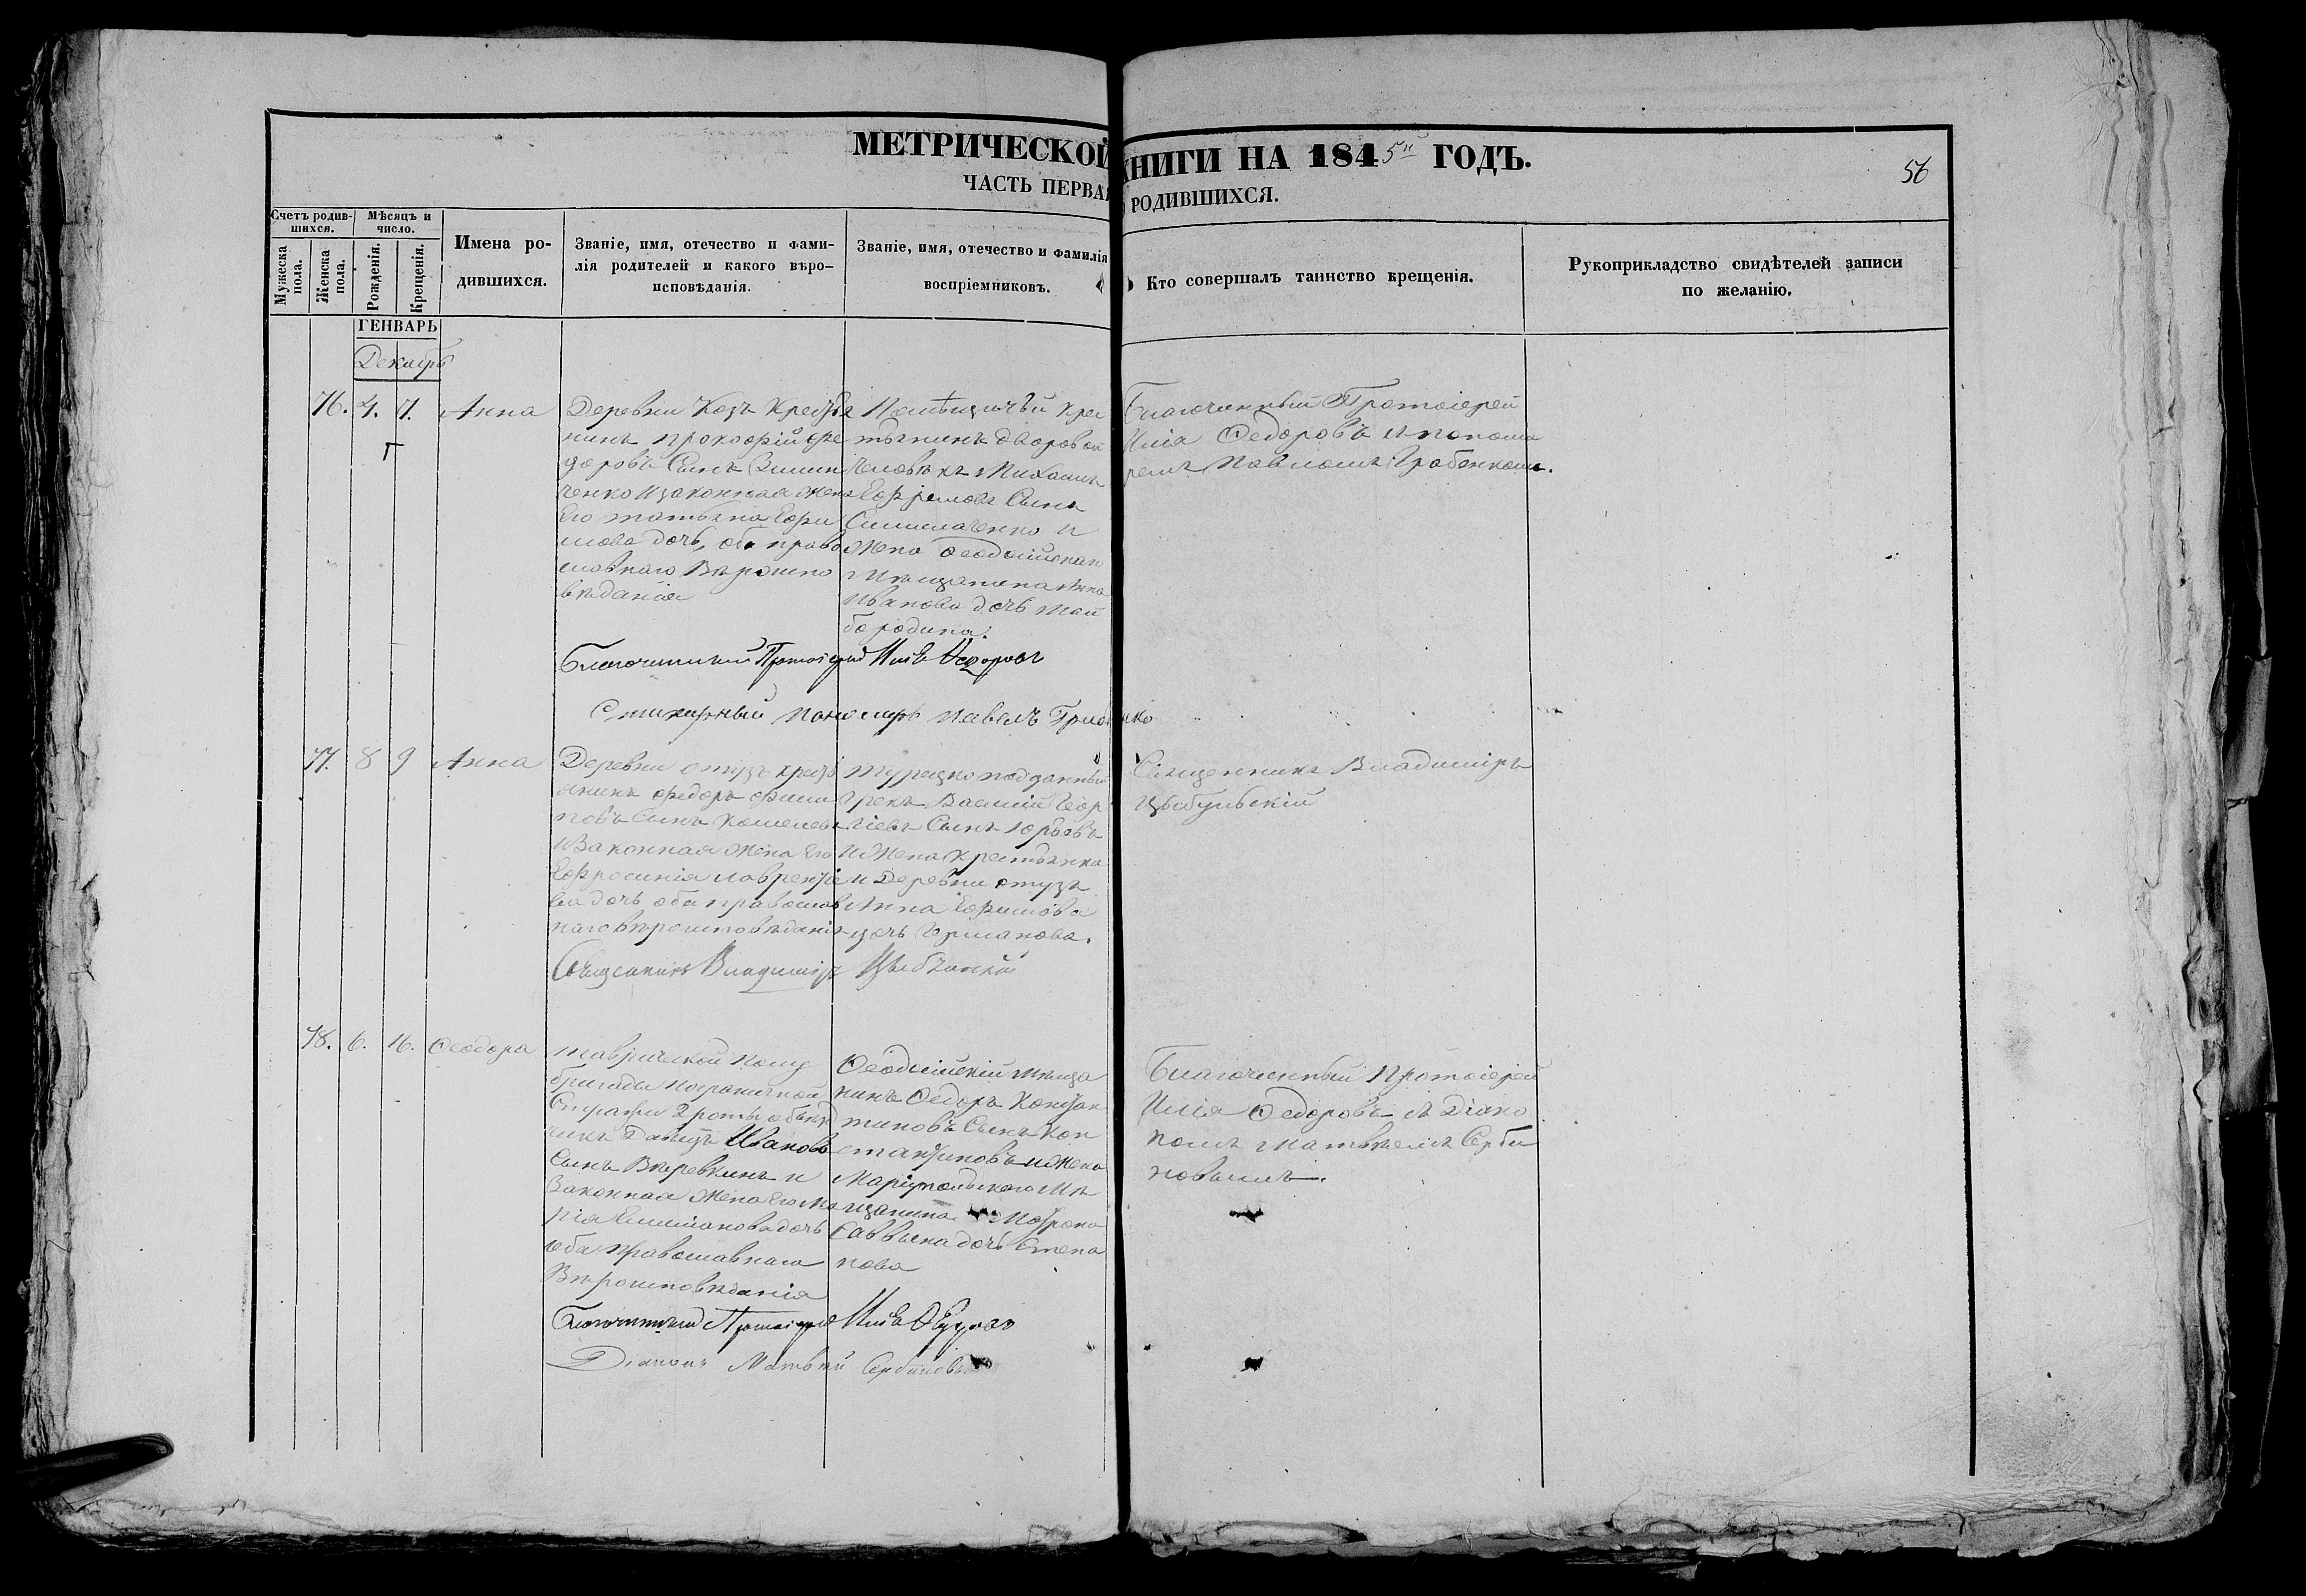 МЕТРИЧЕСКОЙ КНИГИ НА 1845й ГОДЪ.
56
ЧАСТЬ ПЕРВАЯ РОДИВШИХСЯ.
Счетъ родив-
шихся.
Мужеска
пола.
Женска
пола.
Мѣсяцъ и
число.
Рожденія.
Крещенія.
Имена ро-
дившихся.
Званіе, имя, отечество и фами-
лія родителей и какого вѣро-
исповѣданія.
Званіе, имя, отечество и фамилія
воспріемниковъ.
Кто совершалъ таинство крещенія.
Рукоприкладство свидѣтелей записи
по желанію.
ГЕНВАРЬ
Декабрь
76. 4. 7. Анна
Деревни Козъ Крестья
нинъ Прокофій Фе
доровъ Сынъ
ченко и законная жена
Его Татьяна Ефи
мова дочь, оба право
славнаго Вѣроиспо
вѣданія
Помѣщичій Крес
тьянинъ дворовой
человѣкъ Михаилъ
Ефремовъ Сынъ
и
жена Феодосійскаго
Мѣщанина Анна
Иванова дочь Май
бородина.
Благочинный Протоіерей
Илія Федоровъ съ понома
ремъ Павломъ
Благочинный Протоіерей Илія Федоровъ
Стихарный Пономарь Павелъ
77. 8 9 Анна
Деревни Отузъ Кресть
янинъ Федоръ Фили
повъ Сынъ
и Законная жена Его
Ефросинія Лаврентье
ва дочь оба православ
наго вѣроисповѣданія
Турецко подданный
Грекъ Василій Геор
гіевъ Сынъ Юрьевъ
и жена крестьянка
и Деревни Отузъ
Анна Ефимова
дочь
Священникъ Владиміръ
Цыбульскій
Священникъ Владиміръ Цыбульскій
78. 6. 16. Феодора
Таврической Полу
бригады пограничной
Стражи 2 роты объѣзд
чикъ Давидъ Ивановъ
Сынъ Веревкинъ и
Законная жена его Ма
рія дочь
оба Православнаго
Вѣроисповѣданія
Феодосійскій мѣща
нинъ Федоръ Констан
тиновъ Сынъ Кон
стантиновъ и жена
Маріупольскаго Мѣ
щанина Матрона
Саввина дочь Степа
нова
Благочинный Протоіерей
Илія Федоровъ съ Діако
номъ Матвѣемъ Серби
новымъ.
Благочинный Протоіерей Илія Федоровъ
Діаконъ Матвѣй Сербиновъ